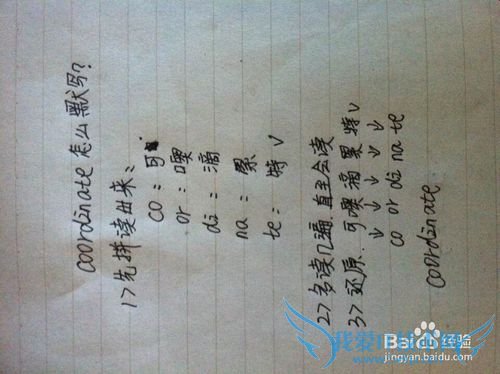 coordinate 怎么默写?
1>先拼读出来:
co : 可
or : 噢
di : 滴
na : 累
te : 特 √
2>多读几遍.直至会读
3>还原. 可噢滴累特√
↓ ↓ ↓ ↓ ↓
co or di na te
coordinate
Baidu 经验
jingyan.baidu.com